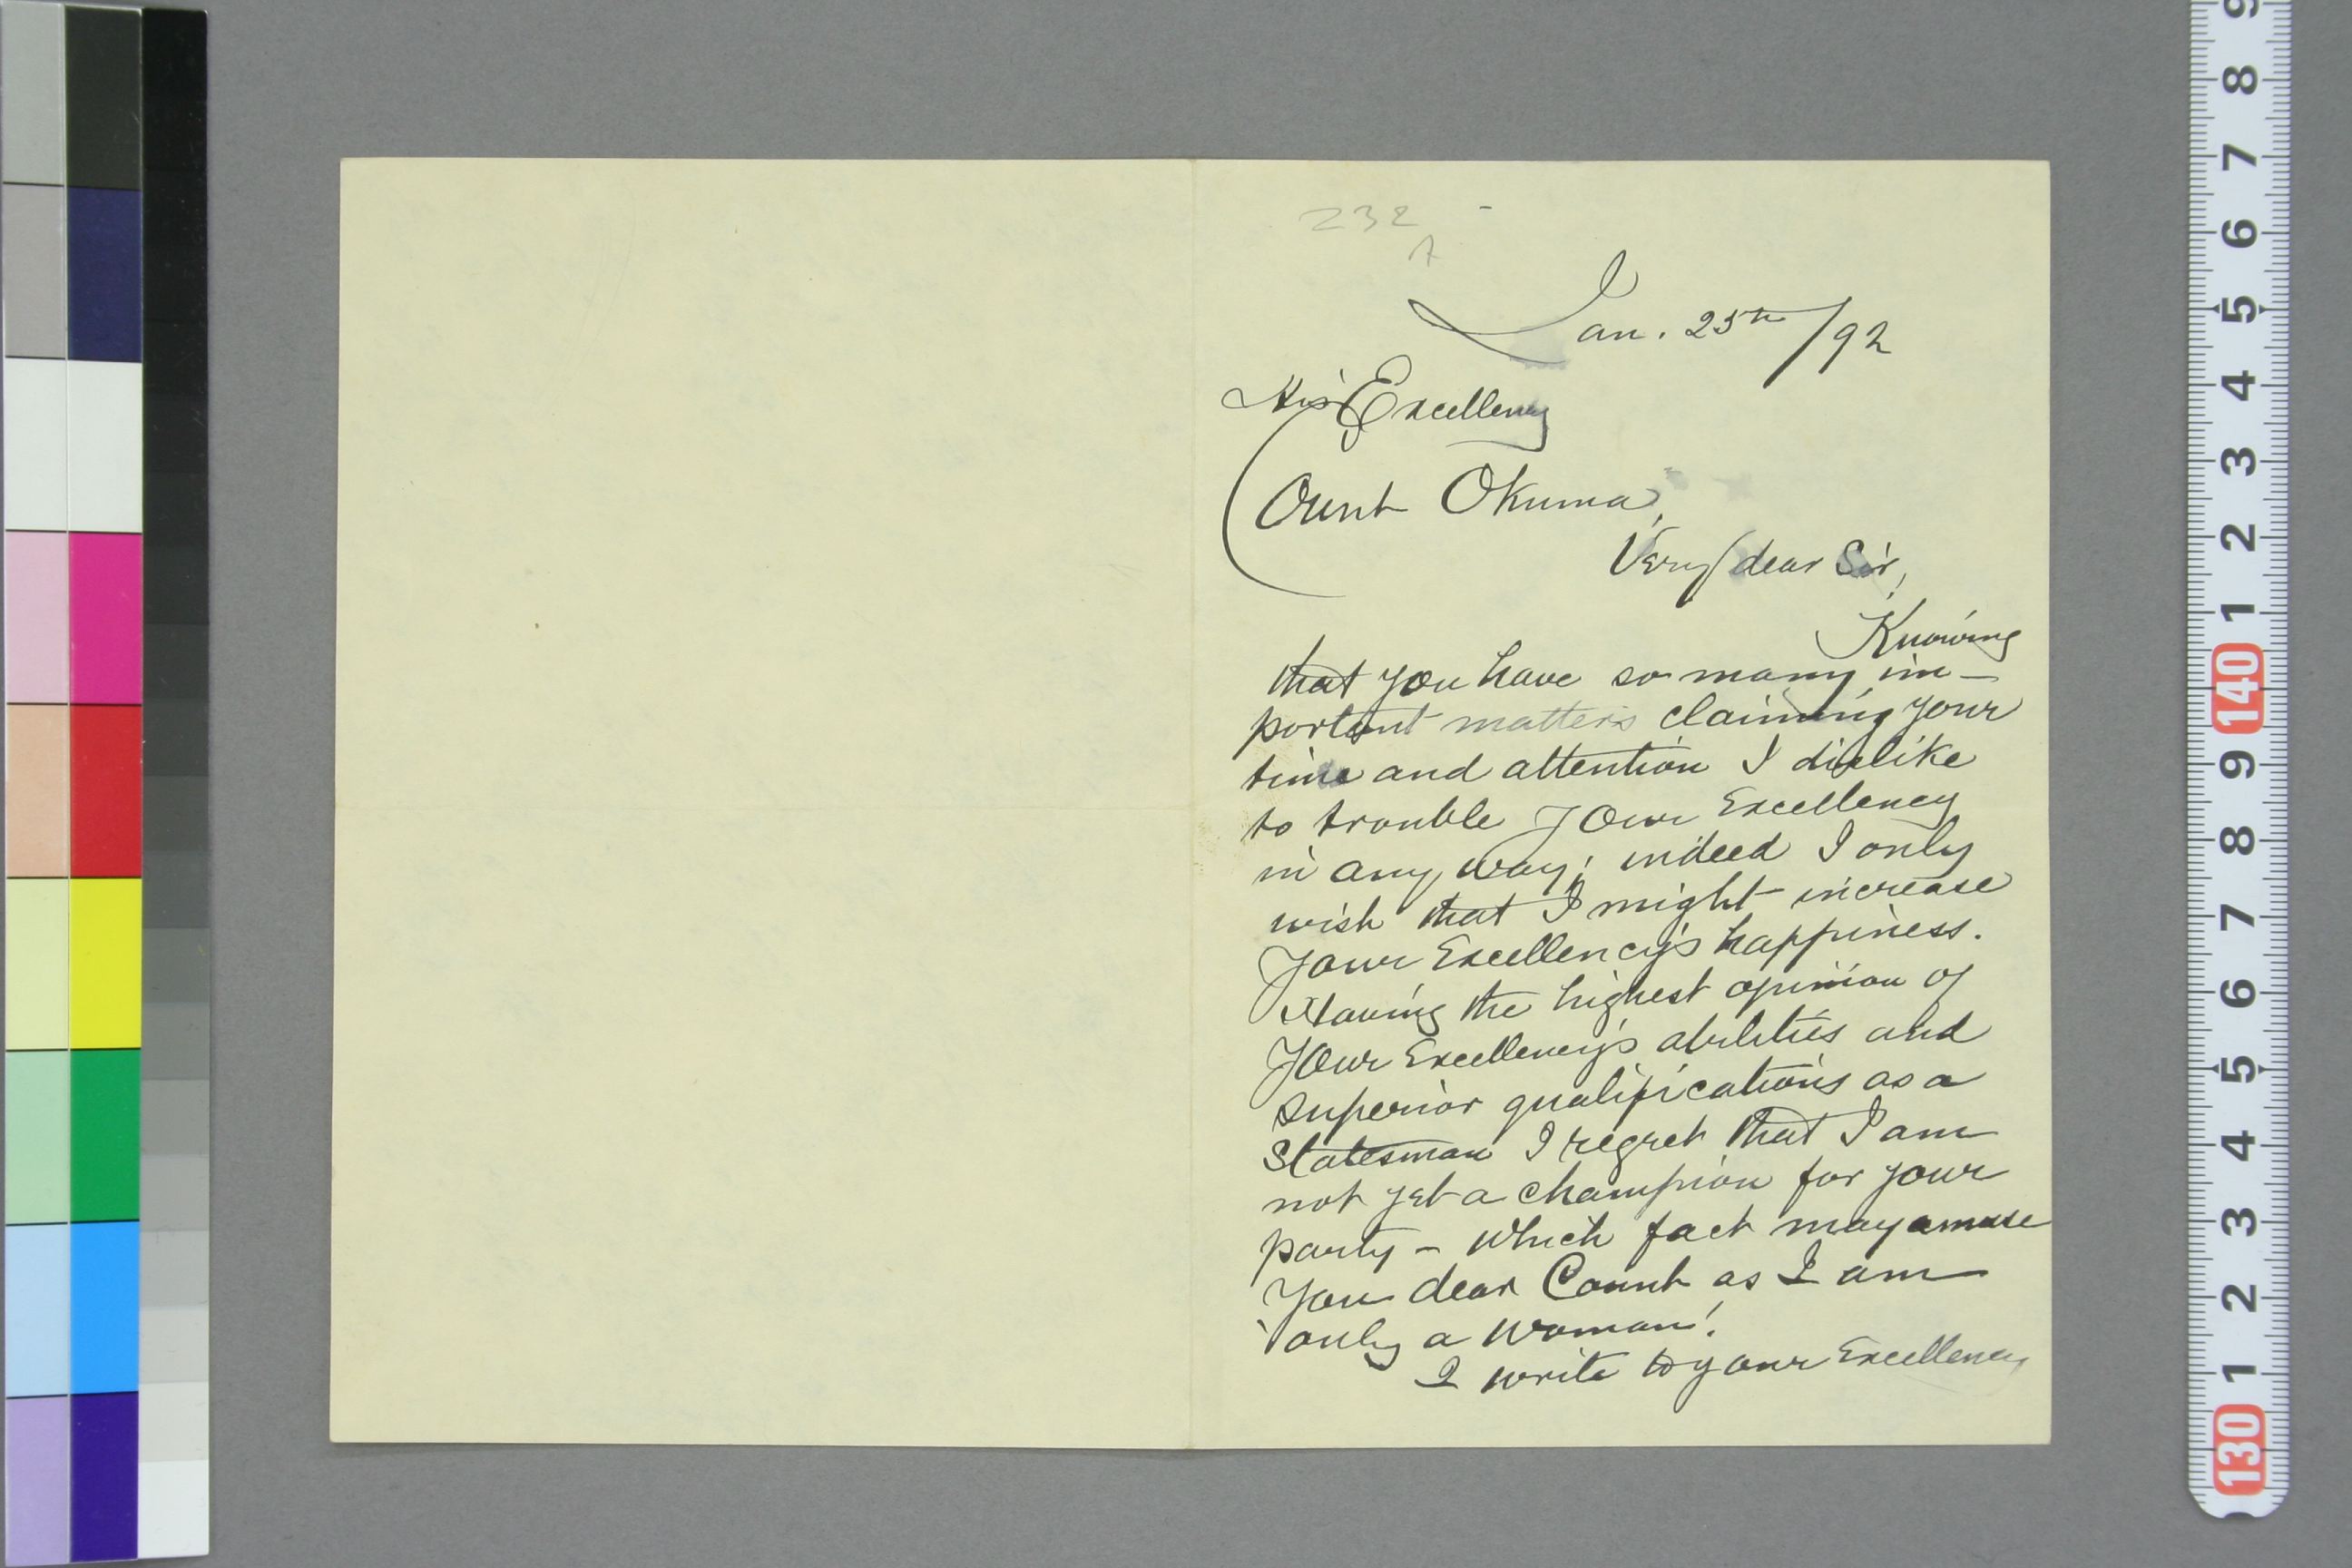 232
A
Jan. 25th/92
His Excellency
Count Okuma,
Very dear Sir,
Knowing
that you have so many im-
portant matters claiming your
time and attention I dislike
to trouble Your Excellency
in any way; indeed I only
wish that I might increase
Your Excellency's happiness.
Having the highest opinion of
Your Excellency's abilities and
superior qualifications as a
Statesman I regret that I am
not yet a champion for your
party - which fact may amuse
you dear Count as I am
only a woman!
I write to your Excellency
9
8
7
6
5
4
3
2
1
140
9
8
7
6
5
4
3
2
1
130